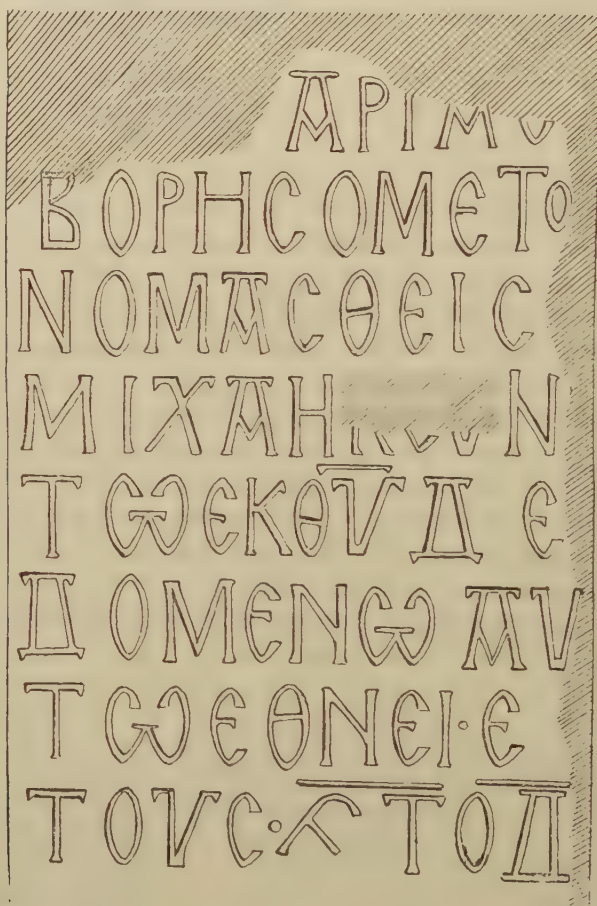 ΑΡΙΜΟ
ΒΟΡΗCΟΜΕΤΟ
ΝΟΜΑCΘΕΙC
ΜΙΧΑΗ Ν
ΤΩΕΚΘΥ̅ΔΕ
ΔΟΜΕΝΩΑΥ
ΤΩΕΘΝΕΙ·Ε
ΤΟΥC·Ϛ̅Τ̅Ο̅Δ̅